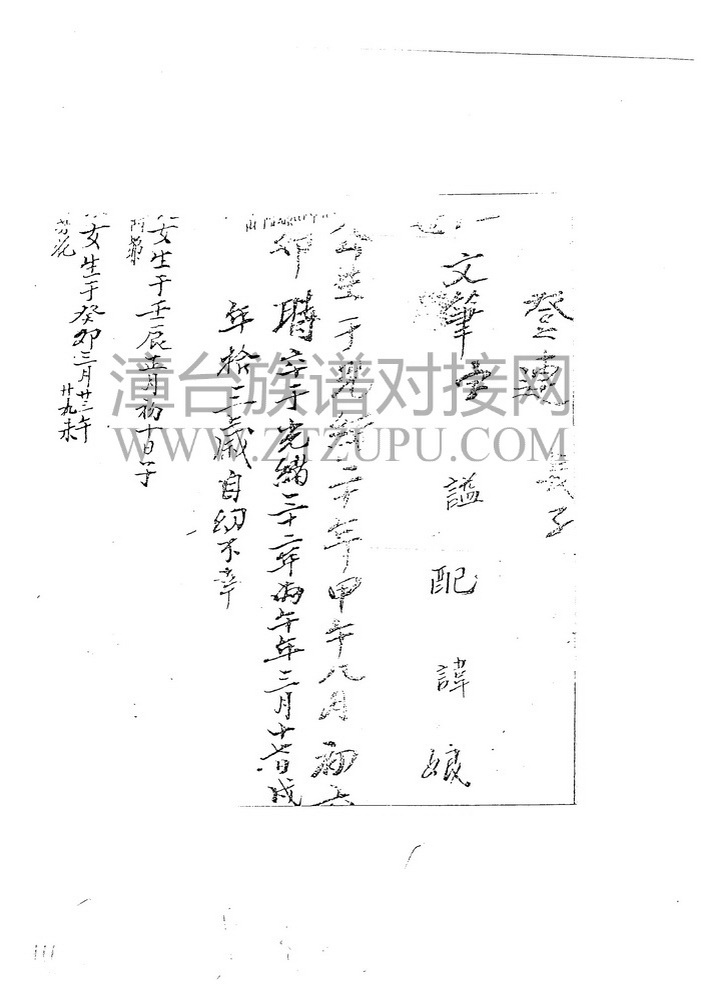 登連 義子
文華 字 謚 配 諱 娘
公生于光緒二十年甲午八月初六
卯時卒于光緒三十二年丙午年三月十七日戌
年拾三歲自幼不幸
女生于壬辰正月初十日子
女生于癸卯三月廿三午
廿九未
芳花
漳台族谱对接网
WWW.ZTZUPU.COM
111